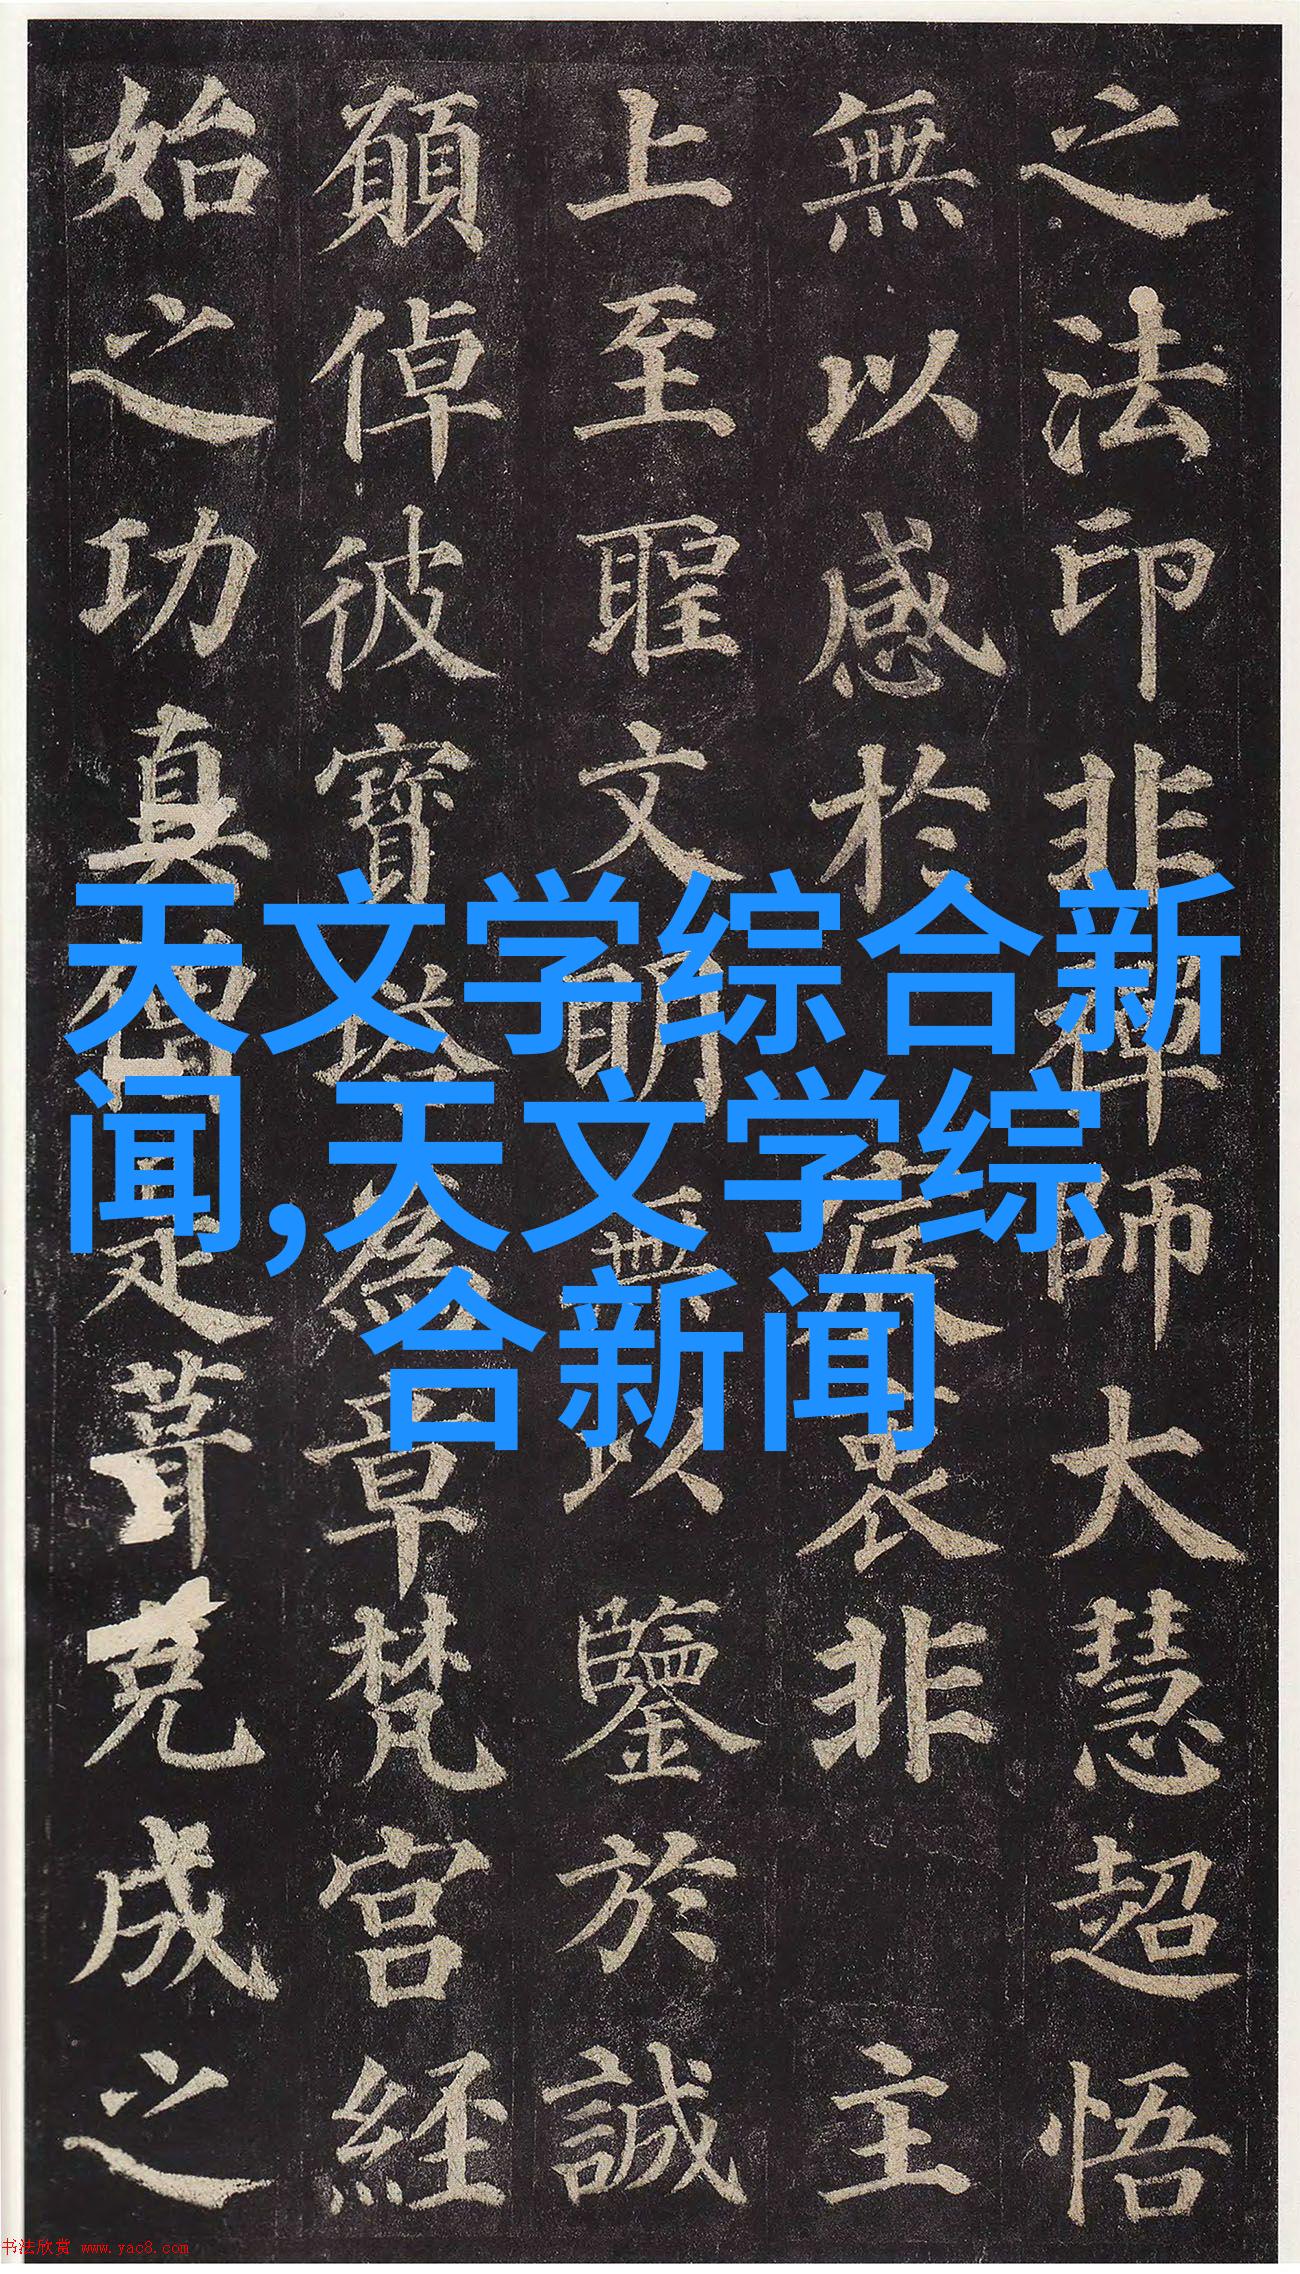 之法印非禪師大慧超悟
無以感於宸衷非主
上至聖文明無以鑒於誠
願倬彼寶塔為章梵宮經
始之功真僧是葺克成之
天文学综合新
闻,天文学综
合新闻
书法欣赏 www.yac8.com